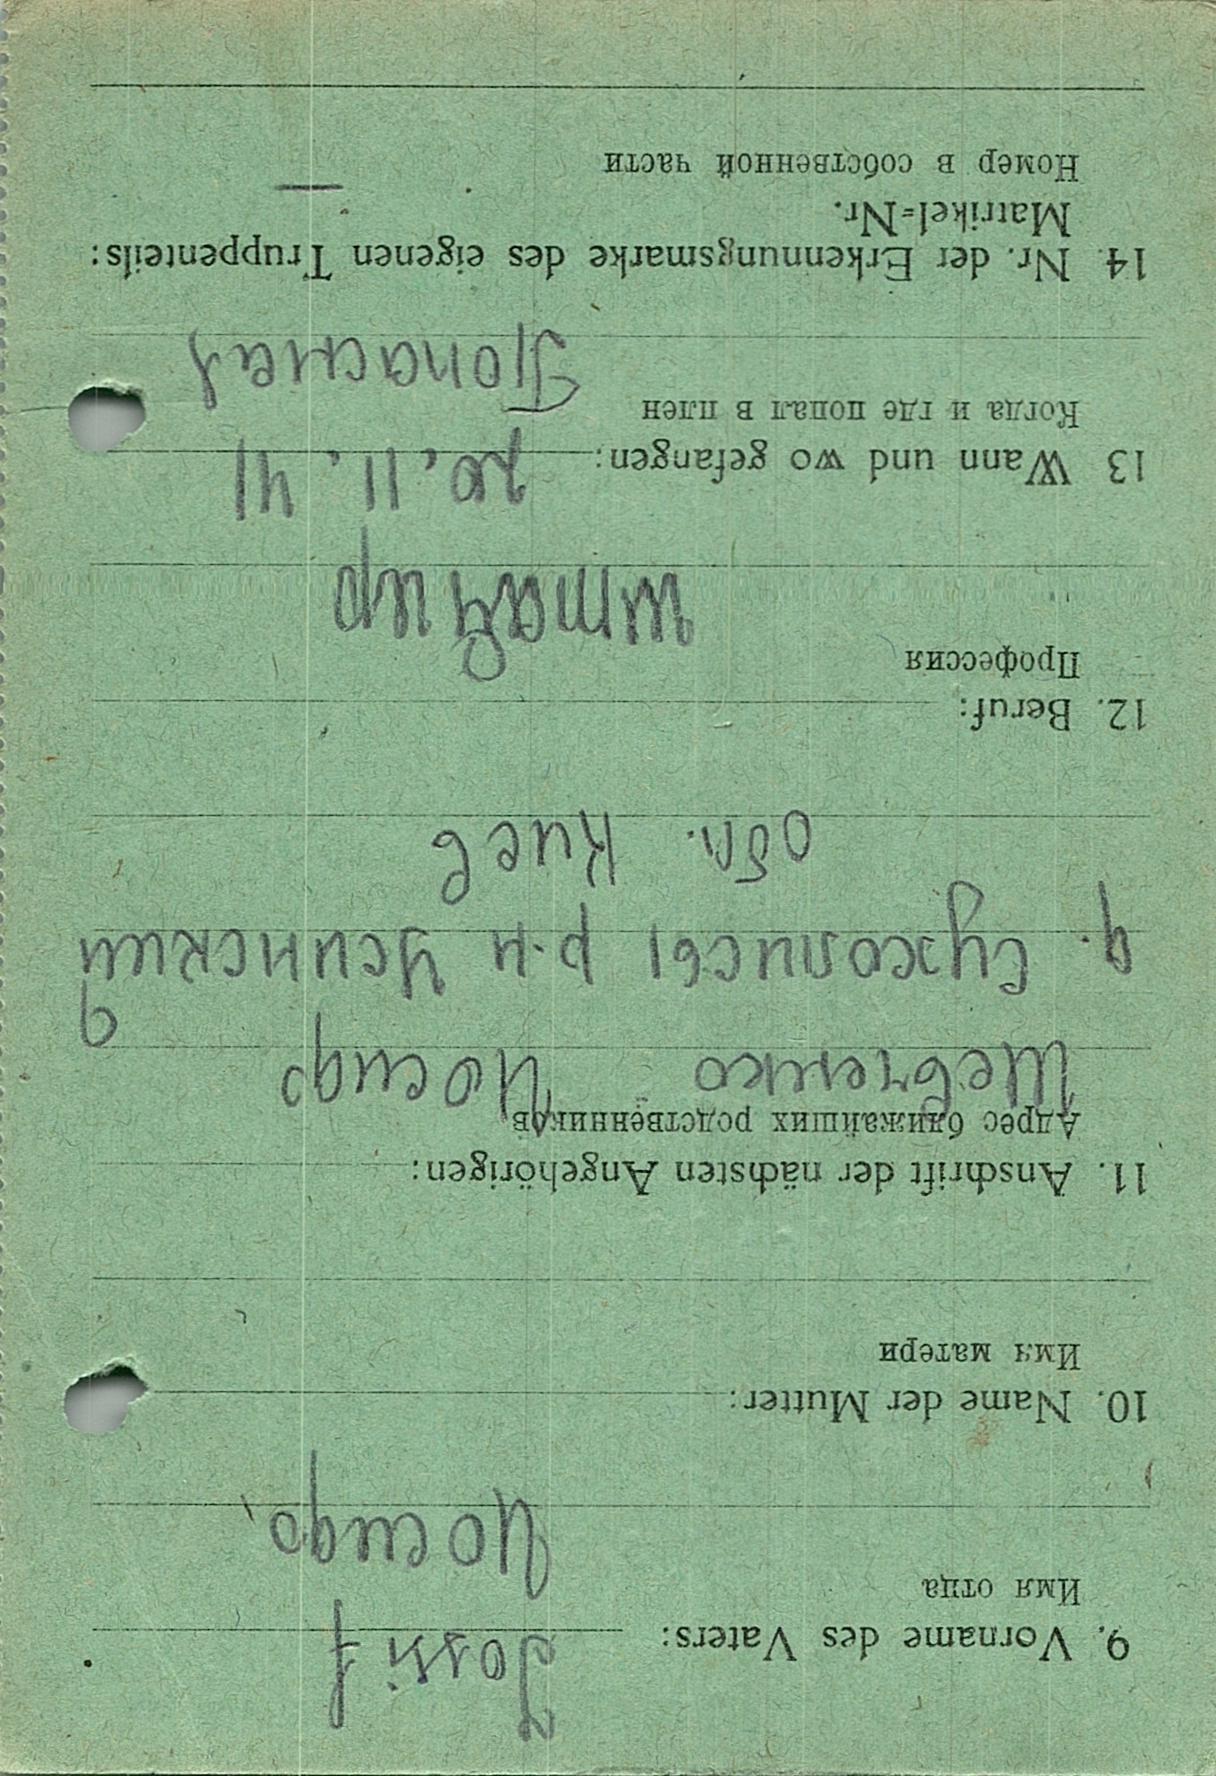 9. Vorname des Vaters: Jossif
Имя отца
Иосиф
10. Name der Mutter:
Имя матери
11. Anschrift der nächsten Angehörigen:
Адрес ближайших родственников
Шевченко Иосиф
д. Сухолисы р-н Усинский
обл. Киев
12. Beruf:
Профессия
13 Wann und wo gefangen: 20.11.41
Когда и где попал в плен
Попасная
14. Nr. der Erkennungsmarke des eigenen Truppenteils:
Matrikel=Nr.
Номер в собственной части —